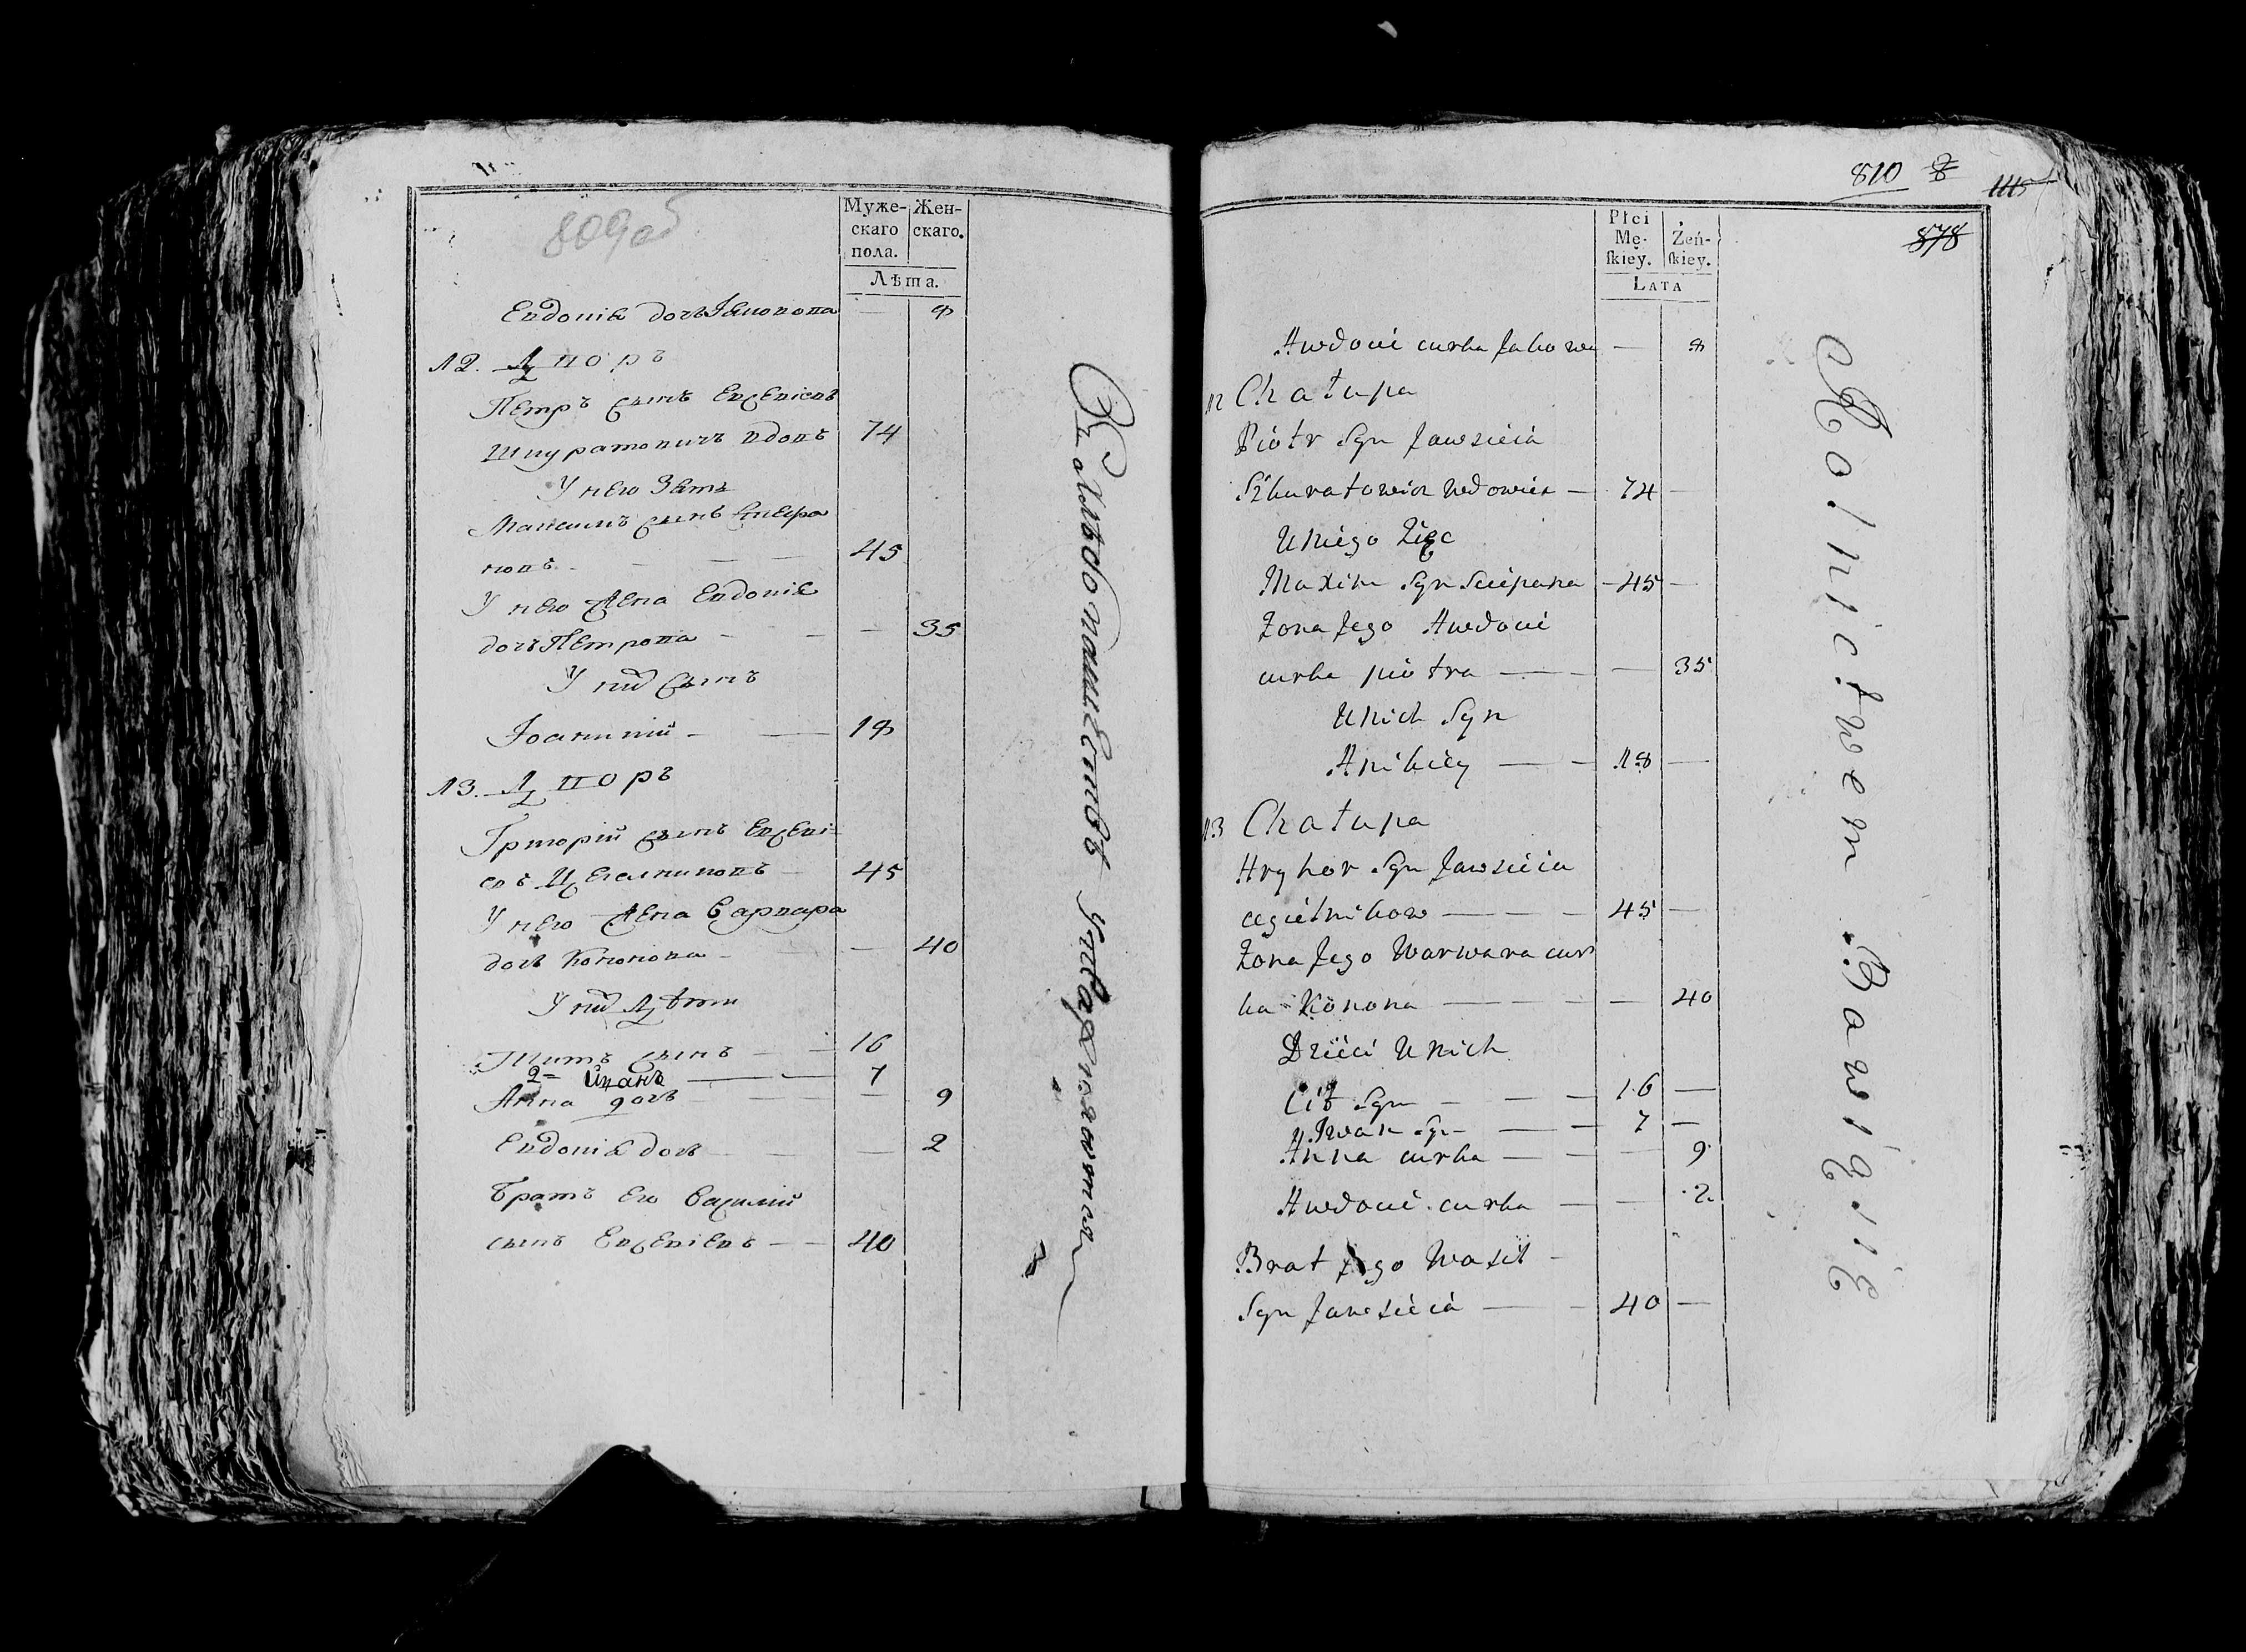 809об
Муже-
скаго
пола.
Жен-
скаго.
Лѣта.
Евдокіѧ дочь Іаковова — 8
12. Дворъ
Петръ сынъ Евсевіевъ
Шкуратовичъ вдовъ 74
У него Зять
Максимъ сынъ Стефа
новъ — — 45
У него Жена Евдокіѧ
дочь Петрова — — — 35
У них сынъ
Іоанникій — — 18
13. Дворъ
Григорій сынъ Евсеві=
евъ Цегелниковъ — 45
У него Жена Варвара
дочь Кононова — — 40
У них Дѣти
Титъ сынъ — — 16
2= Иванъ — — 7
Анна дочь — — — 9
Евдокіѧ дочь — — 2
Братъ его Василий
сынъ Евсевіевъ — — 40
Землѣдолашествѣ упражняются
810 8
1115
878
Płci
Mę-
ſkiéy.
Żeń-
ſkiey.
LATA
Awdoci curka Jakowa — 8
12 Chałupa
Piotr Syn Jawsieia
Szkuratowicz Wdowiec — 74 —
U niego Zięc
Maxim Syn Sciepana — 45 —
Żona Jego Awdoci
curka piotra — — — 35
U nich Syn
Anikiey — — 18 —
13 Chałupa
Hryhor Syn Jawsieia
cegielnikow — — — 45 —
Żona Jego Warwara cur
ka Konona — — — — 40
Dzieci U nich
Cit Syn — — — 16 —
Iwan Syn — — 7 —
Anna curka — — — 9
Awdoci curka — — 2
Brat Jego Wasil —
Syn Jawsieia — — 40 —
Rolnictwem Bawią się